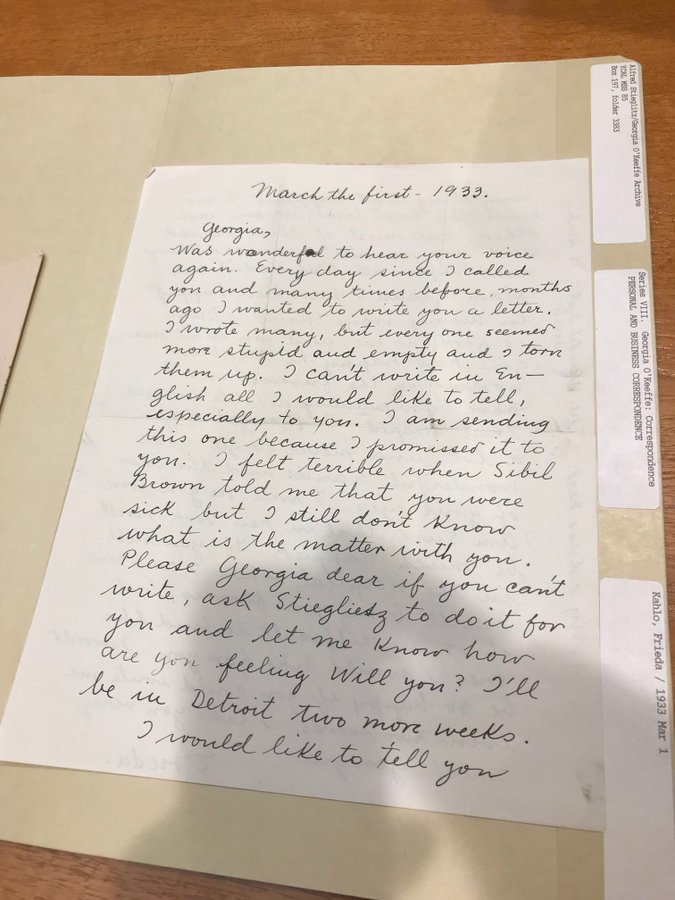 March the first - 1933.
Georgia,
Was wonderful to hear your voice
again. Every day since I called
you and many times before, months
ago I wanted to write you a letter.
I wrote many, but every one seemed
more stupid and empty and I torn
them up. I can't write in En-
glish all I would like to tell,
especially to you. I am sending
this one because I promissed it to
you. I felt terrible when Sibil
Brown told me that you were
sick but I still don't know
what is the matter with you.
Please Georgia dear if you can't
write, ask Stieglietz to do it for
you and let me know how
are you feeling Will you? I'll
be in Detroit two more weeks.
I would like to tell you
Alfred Stieglitz/Georgia O'Keeffe Archive
YCAL MSS 85
Box 197, folder 3383
Series VIII. Georgia O'Keeffe: Correspondence
PERSONAL AND BUSINESS CORRESPONDENCE
Kahlo, Frieda / 1933 Mar 1